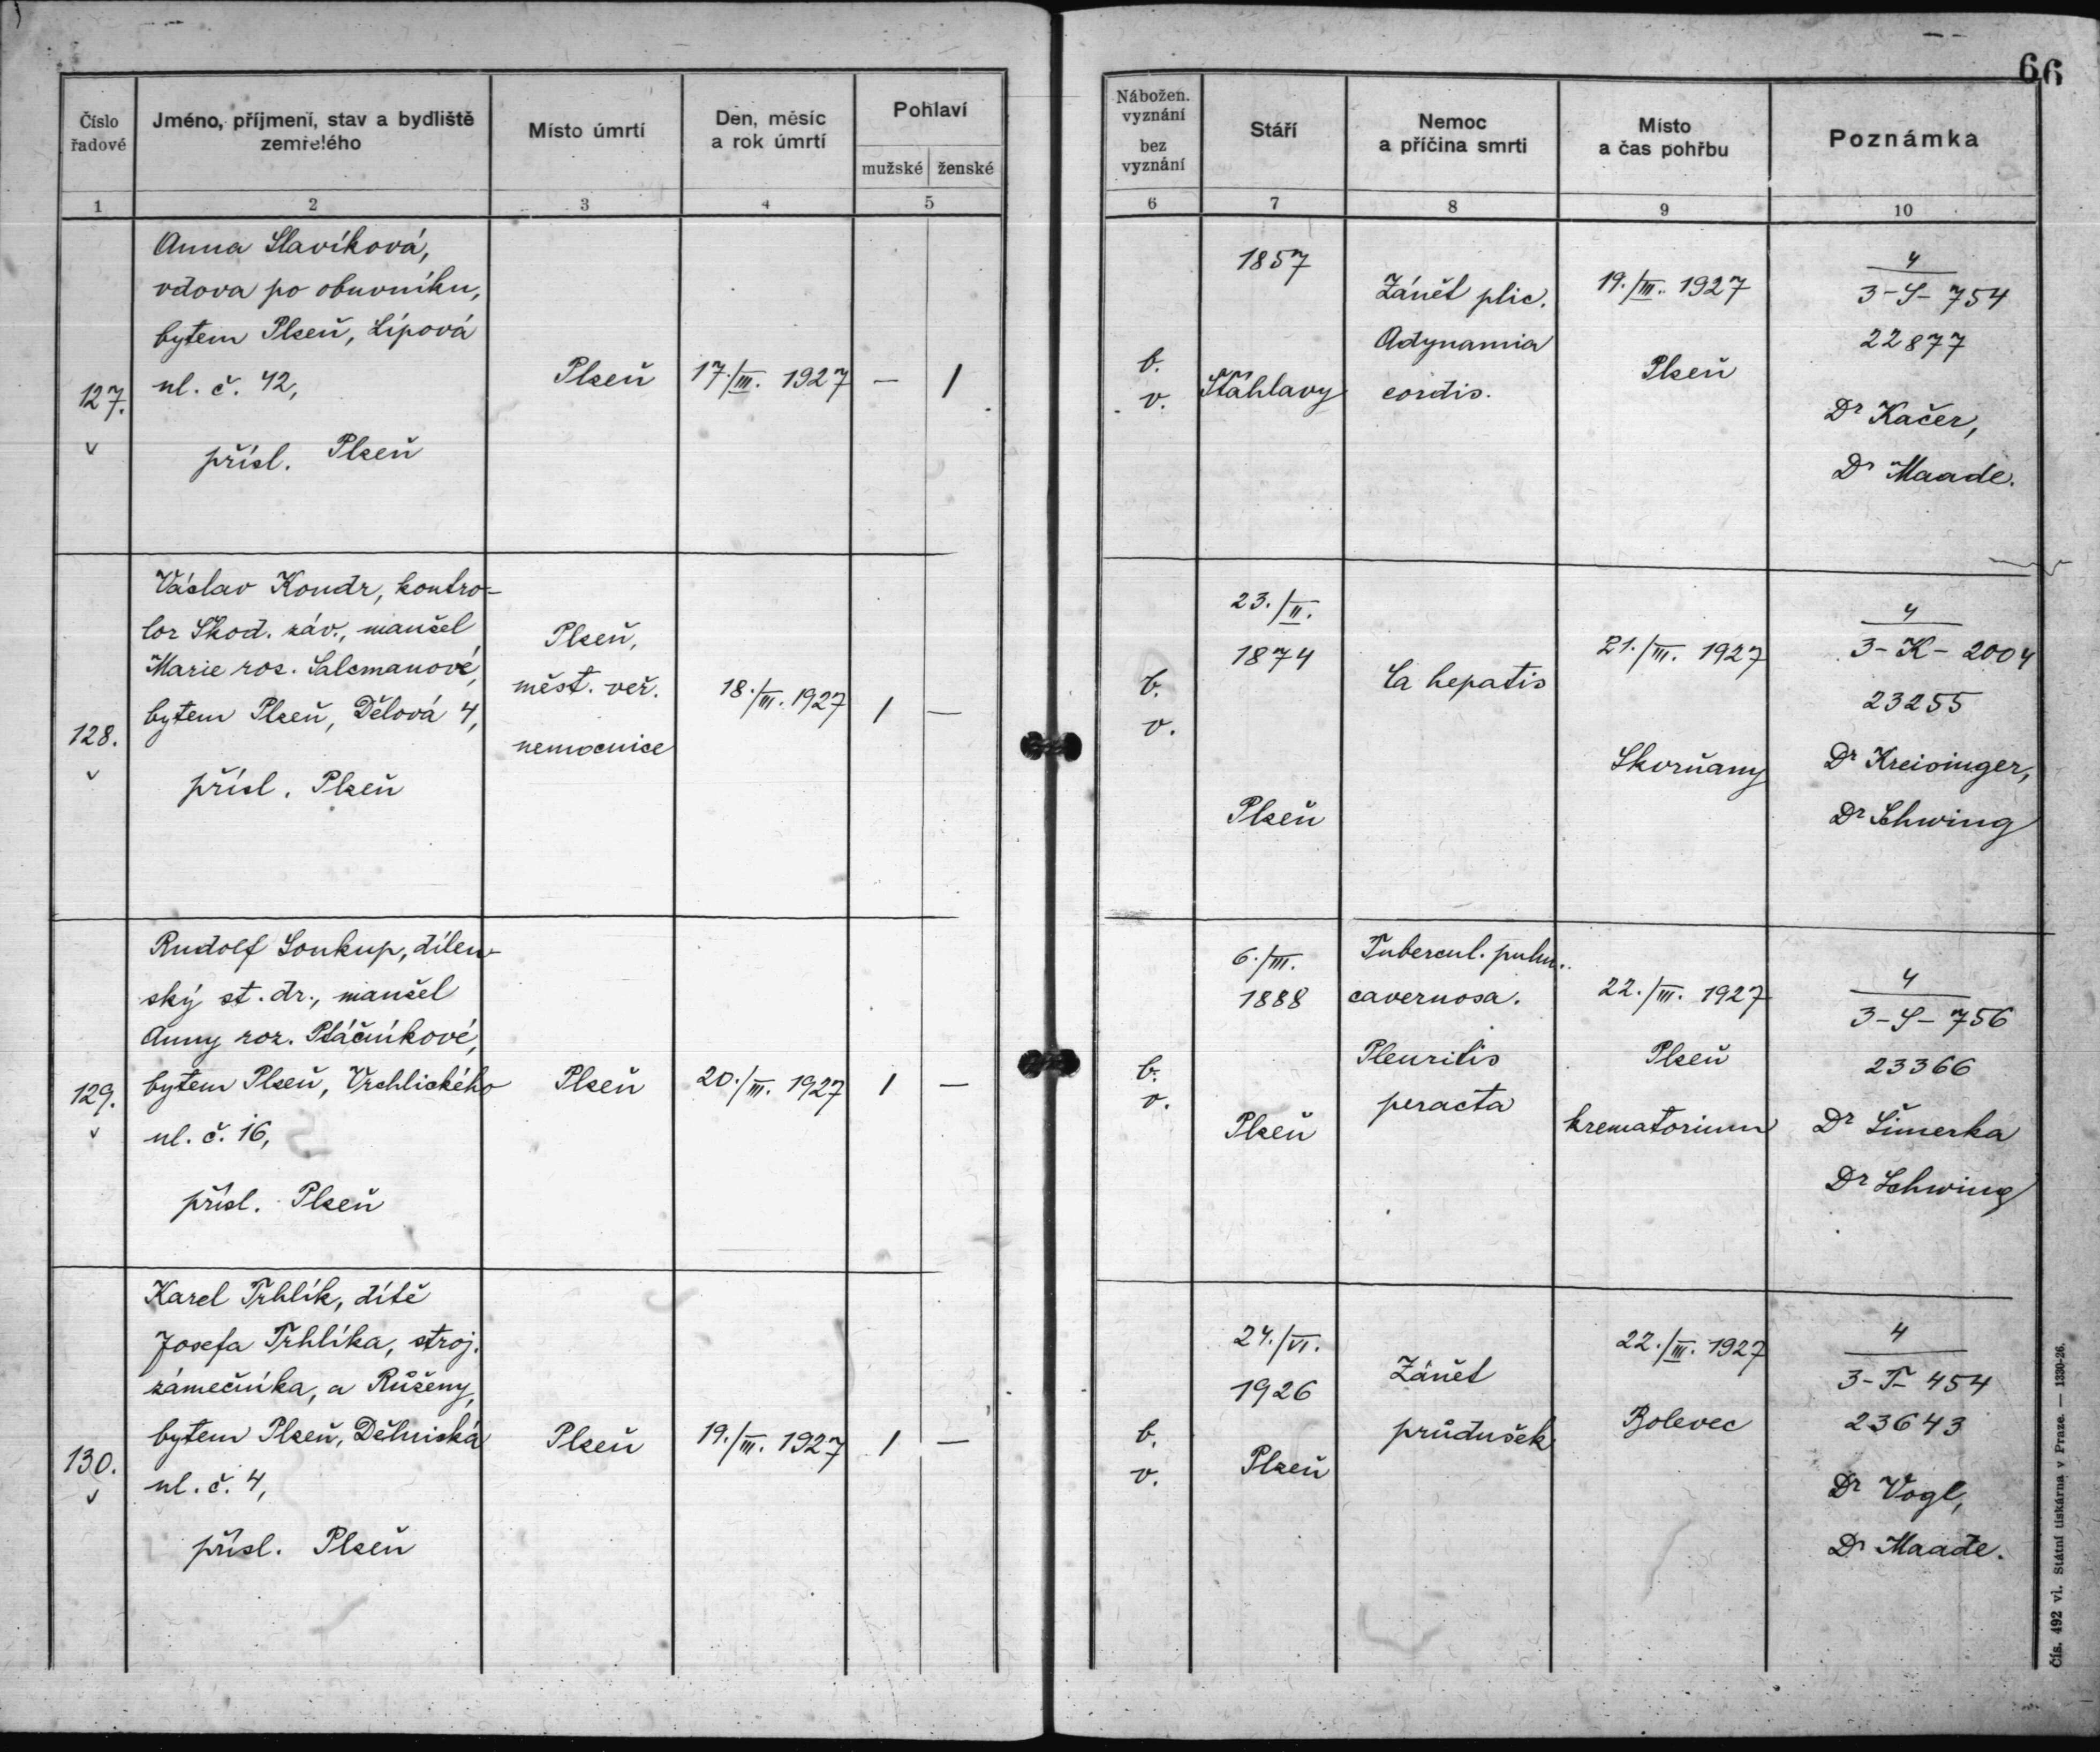 66
Číslo řadové
Jméno, příjmení, stav a bydliště zemřelého
Místo úmrtí
Den, měsíc a rok úmrtí
Pohlaví
mužské ženské
Nábožen. vyznání
bez vyznání
Stáří
Nemoc a příčina smrti
Místo a čas pohřbu
Poznámka
1 2 3 4 5 6 7 8 9 10
127.
v
Anna Slavíková,
vdova po obuvníku,
bytem Plzeň, Lípová
ul. č. 42,
přísl. Plzeň
Plzeň
17./III. 1927
— 1
b.
v.
1857
Šťáhlavy
Zánět plic.
Adynamia
cordis.
19./III. 1927
Plzeň
4
3-S-754
22877
Dr Kačer,
Dr Maade.
128.
v
Václav Koudr, kontro-
lor Škod. záv., manžel
Marie roz. Salcmanové,
bytem Plzeň, Dělová 4,
přísl. Plzeň
Plzeň,
měst. veř.
nemocnice
18./III. 1927
1 —
b.
v.
23./II.
1874
Plzeň
Ca hepatis
21./III. 1927
Skvrňany
4
3-K-2004
23255
Dr Kreisinger,
Dr Schwing
129.
v
Rudolf Soukup, dílen-
ský st. dr., manžel
Anny roz. Ptáčníkové,
bytem Plzeň, Vrchlického
ul. č. 16,
přísl. Plzeň
Plzeň
20./III. 1927
1 —
b.
v.
6./III.
1888
Plzeň
Tubercul. pulm.
cavernosa.
Pleuritis
peracta
22./III. 1927
Plzeň
krematorium
4
3-S-756
23366
Dr Šimerka
Dr Schwing
130.
v
Karel Trhlík, dítě
Josefa Trhlíka, stroj.
zámečníka, a Růženy,
bytem Plzeň, Dělnická
ul. č. 4,
přísl. Plzeň
Plzeň
19./III. 1927
1 —
b.
v.
24./VI.
1926
Plzeň
Zánět
průdušek
22./III. 1927
Bolevec
4
3-T-454
23643
Dr Vogl,
Dr Maade.
Čís. 492 vi. Státní tiskárna v Praze. — 1330-26.